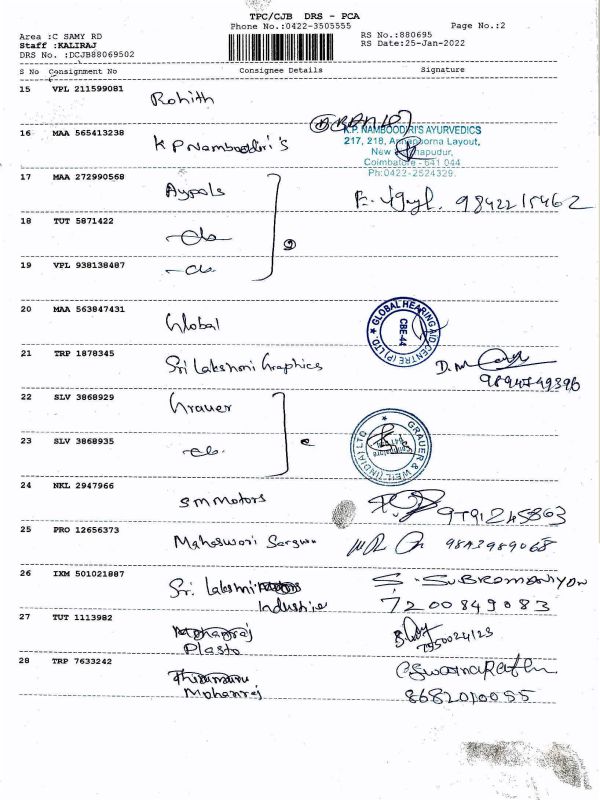 TPC/CJB DRS - PCA
Phone No.:0422-3505555
Page No.:2
Area :C SAMY RD
Staff :KALIRAJ
DRS No. :DCJB88069502
RS No.:880695
RS Date:25-Jan-2022
S No Consignment No Consignee Details Signature
15 VPL 211599081 Rohith
16 MAA 565413238 K P Namboodiri's
K.P. NAMBOODIRI'S AYURVEDICS
217, 218, Annapoorna Layout,
New Sidhapudur,
Coimbatore - 641 044
Ph:0422-2524329.
17 MAA 272990568 9842215462
18 TUT 5871422 -do-
19 VPL 938138487 -do-
20 MAA 563847431 Global
GLOBAL HEARING AID CENTRE (P) LTD.
CBE-44
21 TRP 1878345 Sri Lakshmi Graphics D.M
22 SLV 3868929 Grauer
GRAUER & WEIL (INDIA) LTD
23 SLV 3868935 -do-
24 NKL 2947966 SM Motors
25 PRO 12656373
26 IXM 501021887 Sri Lakshmi
Industrie
S. SUBROMANIYAN
7200849083
27 TUT 1113982 Mohanraj
Plasto
28 TRP 7633242
Mohanraj
8682010055